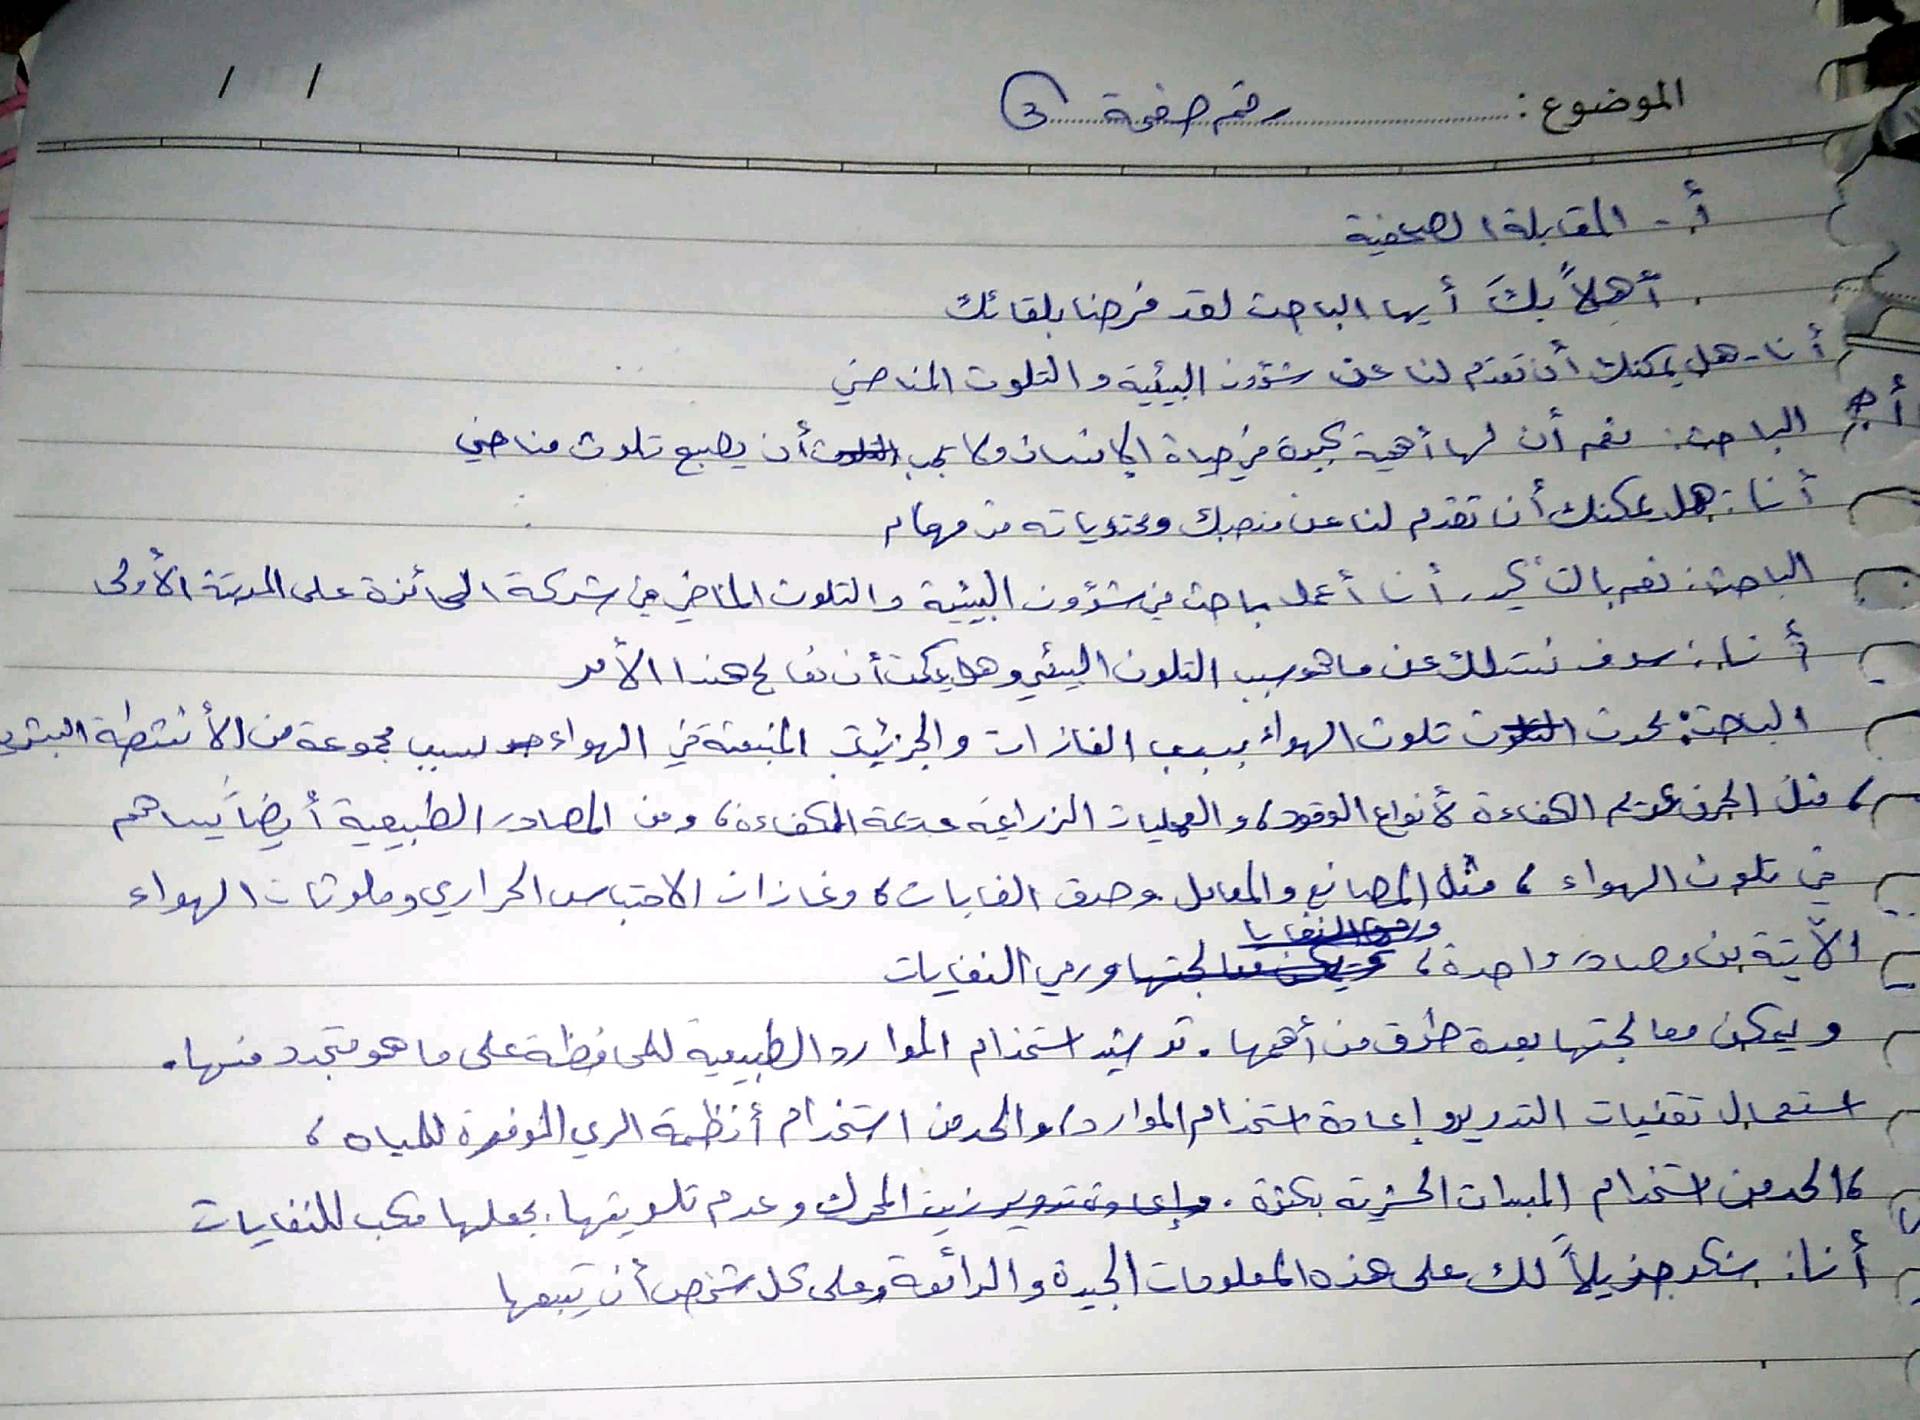 الموضوع : رقم صفحة 3
/ /
أ - المقابلة الصحفية
أهلاً بكَ أيها الباحث لقد فرحنا بلقائك
أنا - هل يمكنك أن تقدم لنا عن شؤون البيئية والتلوث المناخي
الباحث: نعم أن لها أهمية كبيرة في حياة الإنسان ولا يجب أن يصبح تلوث مناخي
أنا: هل يمكنك أن تقدم لنا عن منصبك ومحتوياته من مهام
الباحث: نعم بالتأكيد. أنا أعمل باحث في شؤون البيئية والتلوث المناخي في شركة الحائزة على المرتبة الأولى
أنا: سوف نسئلك عن ما هو سبب التلوث البيئي وهل يمكن أن نعالج هذا الأمر
الباحث: يحدث تلوث الهواء بسبب الغازات والجزئيات المنبعثة في الهواء بسبب مجموعة من الأنشطة البشرية
، مثل الحرق عديم الكفاءة لأنواع الوقود، والعمليات الزراعية عديمة الكفاءة، ومن المصادر الطبيعية أيضاً يساهم
في تلوث الهواء ، مثل المصانع والمعامل وحرق الغابات، وغازات الاحتباس الحراري وملوثات الهواء
الآتية من مصادر واحدة، ورمي النفايات
ويمكن معالجتها بعدة طرق من أهمها. ترشيد استخدام الموارد الطبيعية للمحافظة على ما هو متجدد منها.
استعمال تقنيات التدوير وإعادة استخدام الموارد، والحد من استخدام أنظمة الري الموفرة للمياه ،
، الحد من استخدام المبيدات الحشرية بكثرة. وعدم تلويثها بجعلها مكب للنفايات
أنا: شكر جزيلاً لك على هذه المعلومات الجيدة والرائعة وعلى كل شخص أن يتبعها